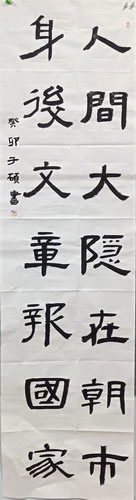 人間大隐在朝市
身後文章報國家
癸卯子碩書